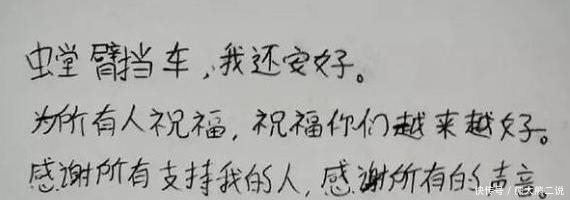 螳臂挡车,我还安好。
为所有人祝福,祝福你们越来越好。
感谢所有支持我的人,感谢所有的声音。
快传号/
二说